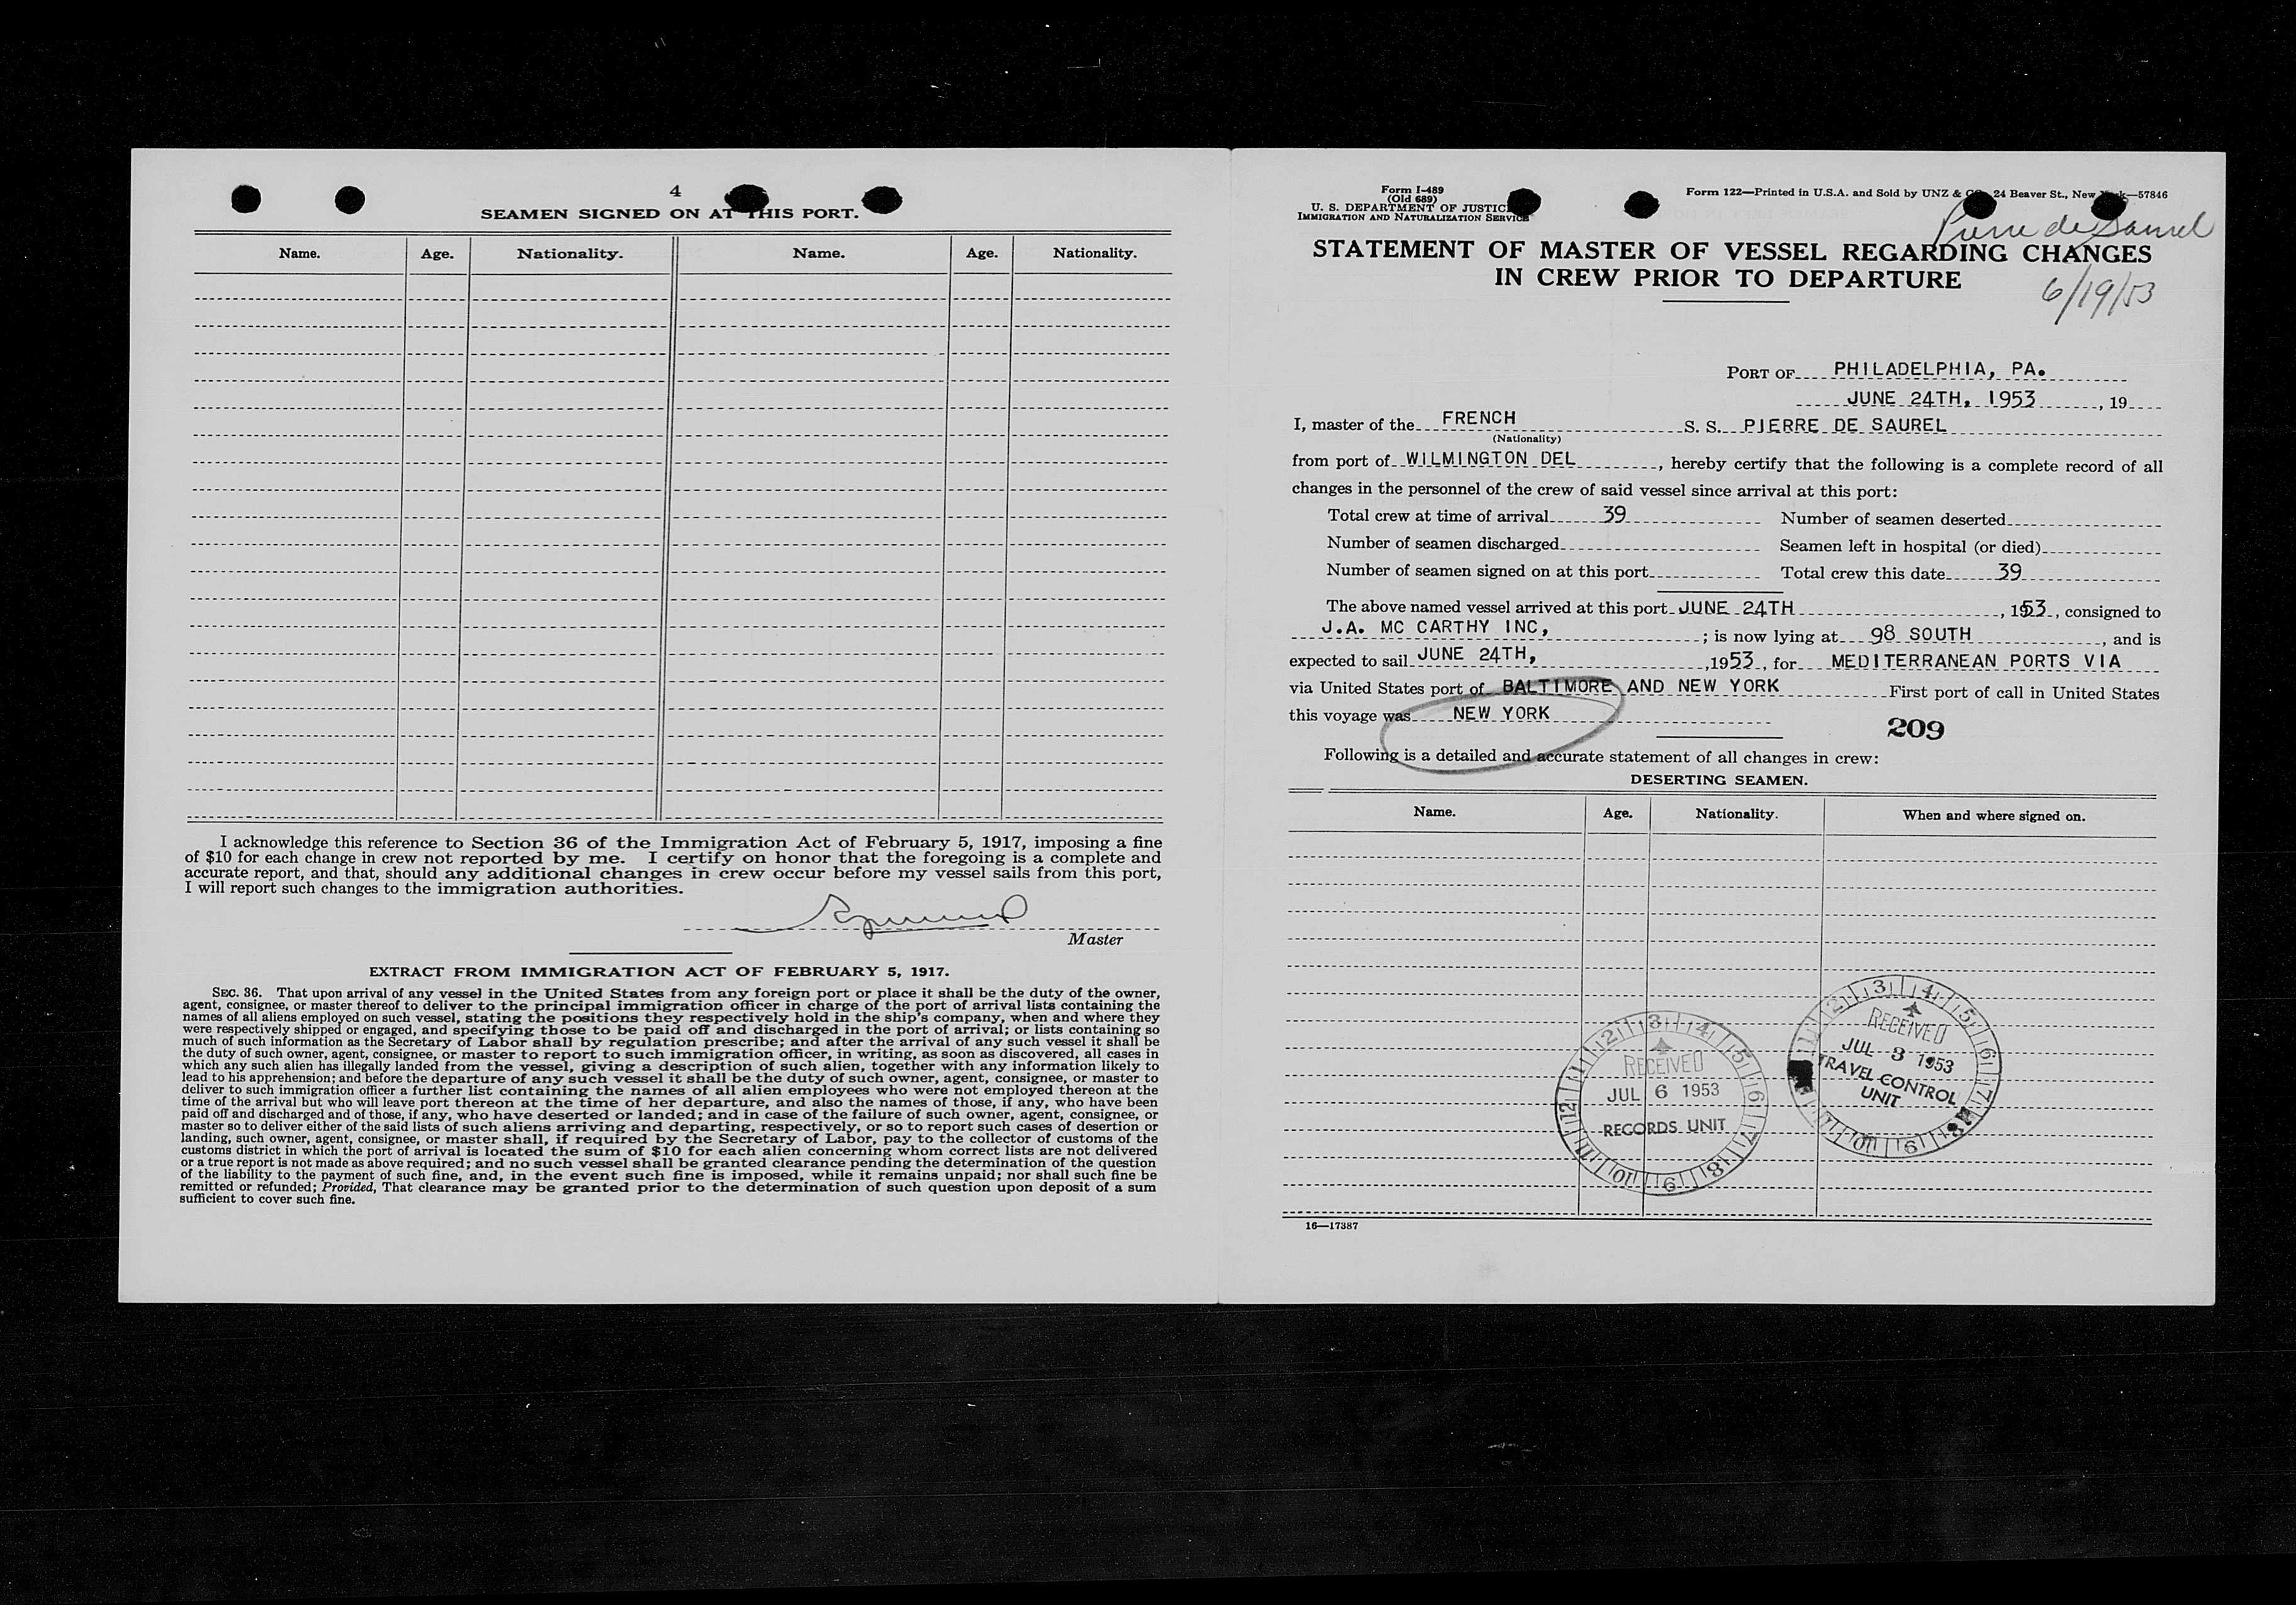 4
SEAMEN SIGNED ON AT THIS PORT.
Name. Age. Nationality. Name. Age. Nationality.
I acknowledge this reference to Section 36 of the Immigration Act of February 5, 1917, imposing a fine
of $10 for each change in crew not reported by me. I certify on honor that the foregoing is a complete and
accurate report, and that, should any additional changes in crew occur before my vessel sails from this port,
I will report such changes to the immigration authorities.
Master
EXTRACT FROM IMMIGRATION ACT OF FEBRUARY 5, 1917.
SEC. 36. That upon arrival of any vessel in the United States from any foreign port or place it shall be the duty of the owner,
agent, consignee, or master thereof to deliver to the principal immigration officer in charge of the port of arrival lists containing the
names of all aliens employed on such vessel, stating the positions they respectively hold in the ship's company, when and where they
were respectively shipped or engaged, and specifying those to be paid off and discharged in the port of arrival; or lists containing so
much of such information as the Secretary of Labor shall by regulation prescribe; and after the arrival of any such vessel it shall be
the duty of such owner, agent, consignee, or master to report to such immigration officer, in writing, as soon as discovered, all cases in
which any such alien has illegally landed from the vessel, giving a description of such alien, together with any information likely to
lead to his apprehension; and before the departure of any such vessel it shall be the duty of such owner, agent, consignee, or master to
deliver to such immigration officer a further list containing the names of all alien employees who were not employed thereon at the
time of the arrival but who will leave port thereon at the time of her departure, and also the names of those, if any, who have been
paid off and discharged and of those, if any, who have deserted or landed; and in case of the failure of such owner, agent, consignee, or
master so to deliver either of the said lists of such aliens arriving and departing, respectively, or so to report such cases of desertion or
landing, such owner, agent, consignee, or master shall, if required by the Secretary of Labor, pay to the collector of customs of the
customs district in which the port of arrival is located the sum of $10 for each alien concerning whom correct lists are not delivered
or a true report is not made as above required; and no such vessel shall be granted clearance pending the determination of the question
of the liability to the payment of such fine, and, in the event such fine is imposed, while it remains unpaid; nor shall such fine be
remitted or refunded; Provided, That clearance may be granted prior to the determination of such question upon deposit of a sum
sufficient to cover such fine.
Form I-489
(Old 689)
U. S. DEPARTMENT OF JUSTICE
IMMIGRATION AND NATURALIZATION SERVICE
Form 122—Printed in U.S.A. and Sold by UNZ & CO. 24 Beaver St., New York—57846
Pierre de Saurel
STATEMENT OF MASTER OF VESSEL REGARDING CHANGES
IN CREW PRIOR TO DEPARTURE
6/19/53
PORT OF PHILADELPHIA, PA.
JUNE 24TH, 1953, 19
I, master of the FRENCH S. S. PIERRE DE SAUREL
(Nationality)
from port of WILMINGTON DEL, hereby certify that the following is a complete record of all
changes in the personnel of the crew of said vessel since arrival at this port:
Total crew at time of arrival 39 Number of seamen deserted
Number of seamen discharged Seamen left in hospital (or died)
Number of seamen signed on at this port Total crew this date 39
The above named vessel arrived at this port JUNE 24TH, 1953, consigned to
J.A. MC CARTHY INC, ; is now lying at 98 SOUTH, and is
expected to sail JUNE 24TH, ,1953, for MEDITERRANEAN PORTS VIA
via United States port of BALTIMORE AND NEW YORK First port of call in United States
this voyage was NEW YORK
209
Following is a detailed and accurate statement of all changes in crew:
DESERTING SEAMEN.
Name. Age. Nationality. When and where signed on.
12 1 2 3 4 5 6 7 8 9 10 11
RECEIVED
JUL 6 1953
RECORDS UNIT
1 2 3 4 5 6 7 8 9 10 11
RECEIVED
JUL 3 1953
TRAVEL CONTROL
UNIT
16—17387